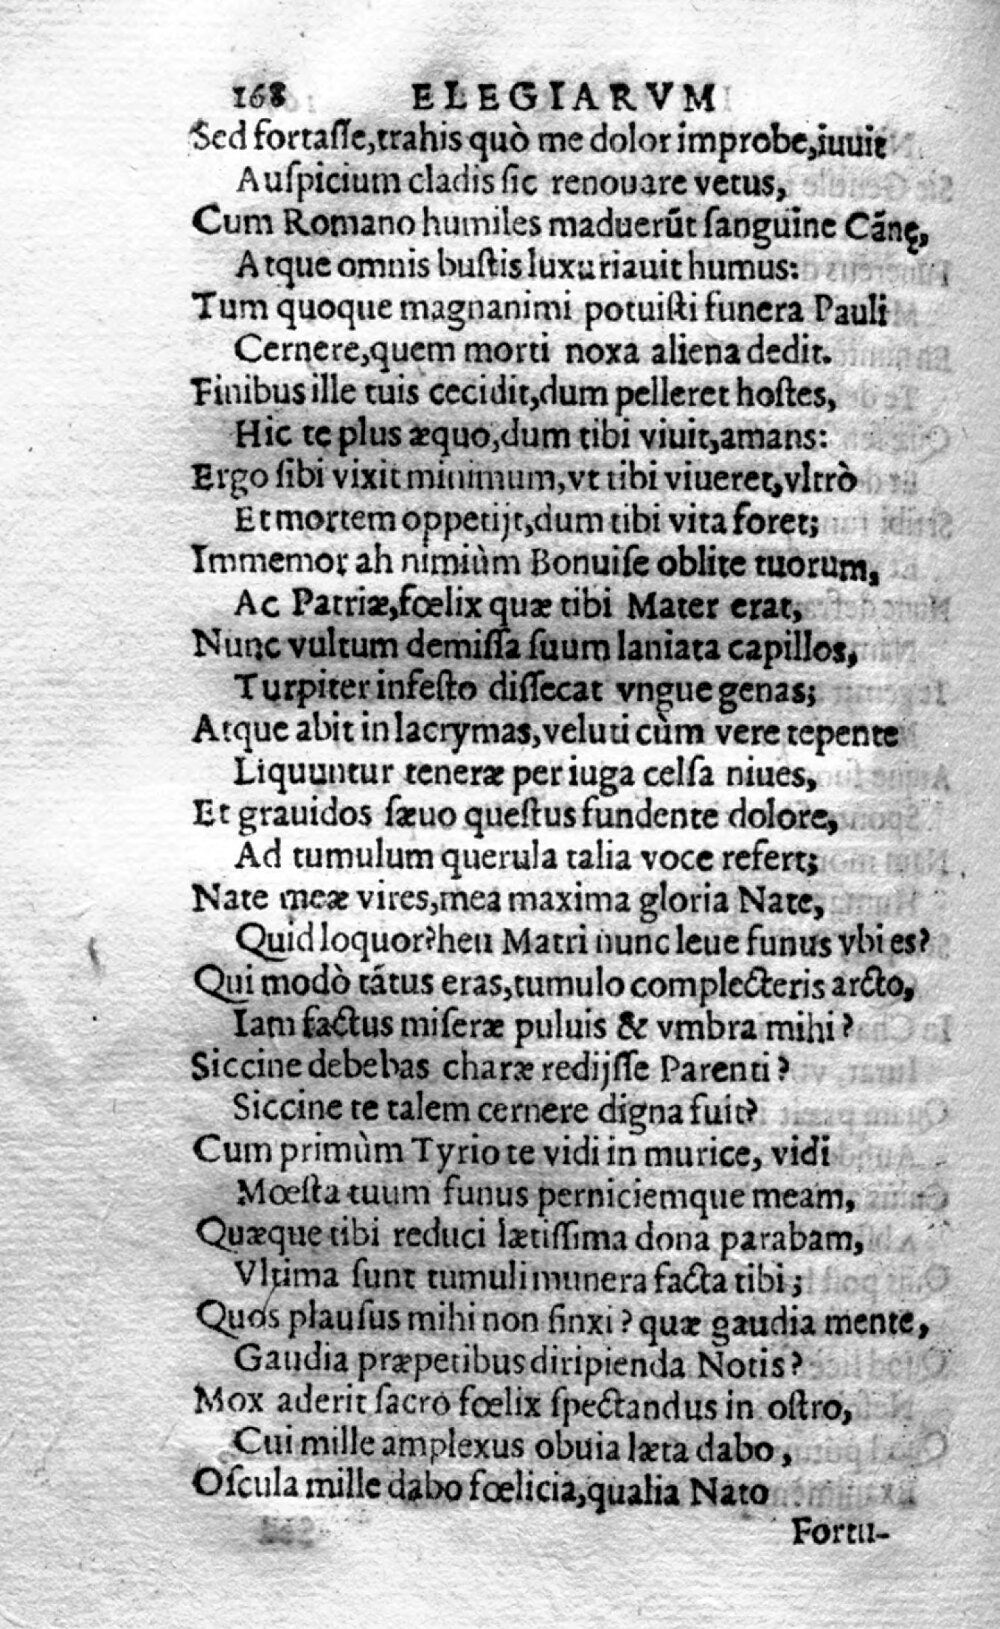 168 ELEGIARVM
Sed fortaſſe, trahis quò me dolor improbe, iuuit
Auſpicium cladis ſic renouare vetus,
Cum Romano humiles maduerũt ſanguine Cãnę,
Atque omnis buſtis luxuriauit humus:
Tum quoque magnanimi potuiſti funera Pauli
Cernere, quem morti noxa aliena dedit.
Finibus ille tuis cecidit, dum pelleret hoſtes,
Hic te plus æquo, dum tibi viuit, amans:
Ergo ſibi vixit minimum, vt tibi viueret, vltrò
Et mortem oppetijt, dum tibi vita foret;
Immemor ah nimiùm Bonuiſe oblite tuorum,
Ac Patriæ, fœlix quæ tibi Mater erat,
Nunc vultum demiſſa ſuum laniata capillos,
Turpiter infeſto diſſecat vngue genas;
Atque abit in lacrymas, veluti cùm vere tepente
Liquuntur teneræ per iuga celſa niues,
Et grauidos ſæuo queſtus fundente dolore,
Ad tumulum querula talia voce refert;
Nate meæ vires, mea maxima gloria Nate,
Quid loquor? heu Matri nunc leue funus vbi es?
Qui modò tátus eras, tumulo complecteris arcto,
Iam factus miſeræ puluis & vmbra mihi?
Siccine debebas charæ redijſſe Parenti?
Siccine te talem cernere digna fuit?
Cum primùm Tyrio te vidi in murice, vidi
Mœſta tuum funus perniciemque meam,
Quæque tibi reduci lætiſſima dona parabam,
Vltima ſunt tumuli munera facta tibi;
Quos plauſus mihi non finxi? quæ gaudia mente,
Gaudia præpetibus diripienda Notis?
Mox aderit ſacro fœlix ſpectandus in oſtro,
Cui mille amplexus obuia læta dabo,
Oſcula mille dabo fœlicia, qualia Nato
Fortu-